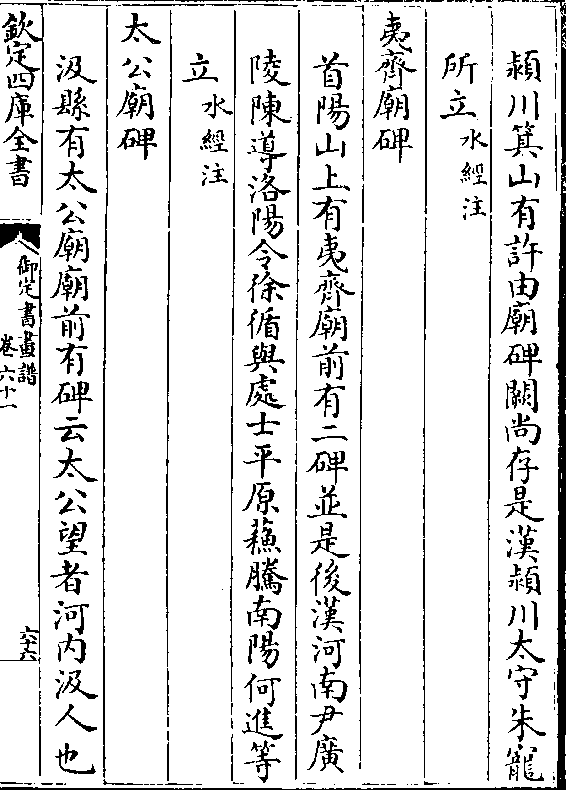 頴川箕山有許由廟碑闕尚存是漢頴川太守朱寵
所立水經注
夷齊廟碑
首陽山上有夷齊廟前有二碑並是後漢河南尹廣
陵陳導洛陽令徐循與處士平原蘓騰南陽何進等
立水經注
太公廟碑
汲縣有太公廟廟前有碑云太公望者河内汲人也
欽定四庫全書
御定書畫譜
卷六十一
六十六